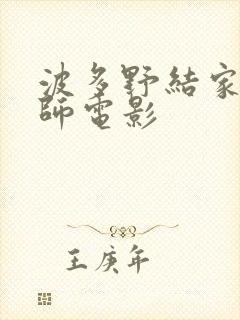 波多野結家
師電影
王庚年